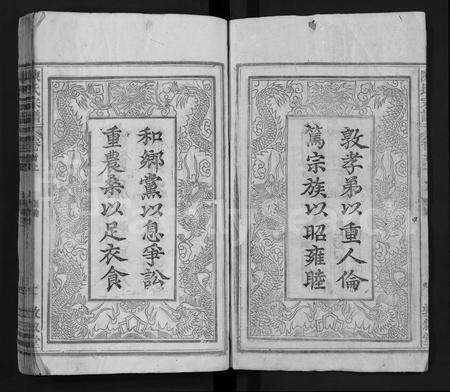 敦孝弟以重人倫
篤宗族以昭雍睦
和鄉黨以息爭訟
重農桒以足衣食